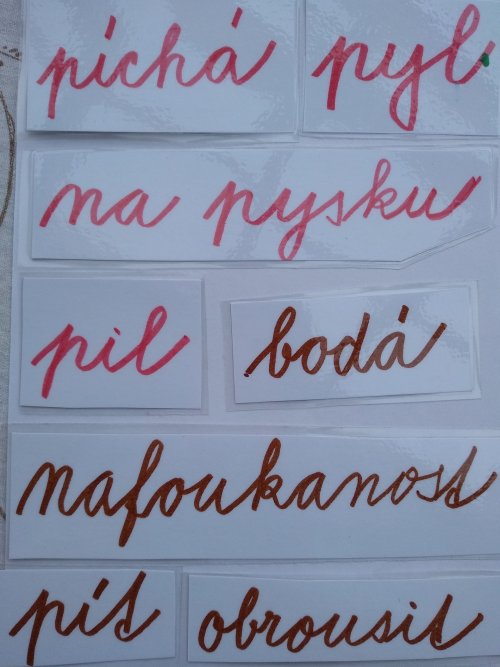 píchá pyl
na pysku
pil bodá
nafoukanost
pít obrousit